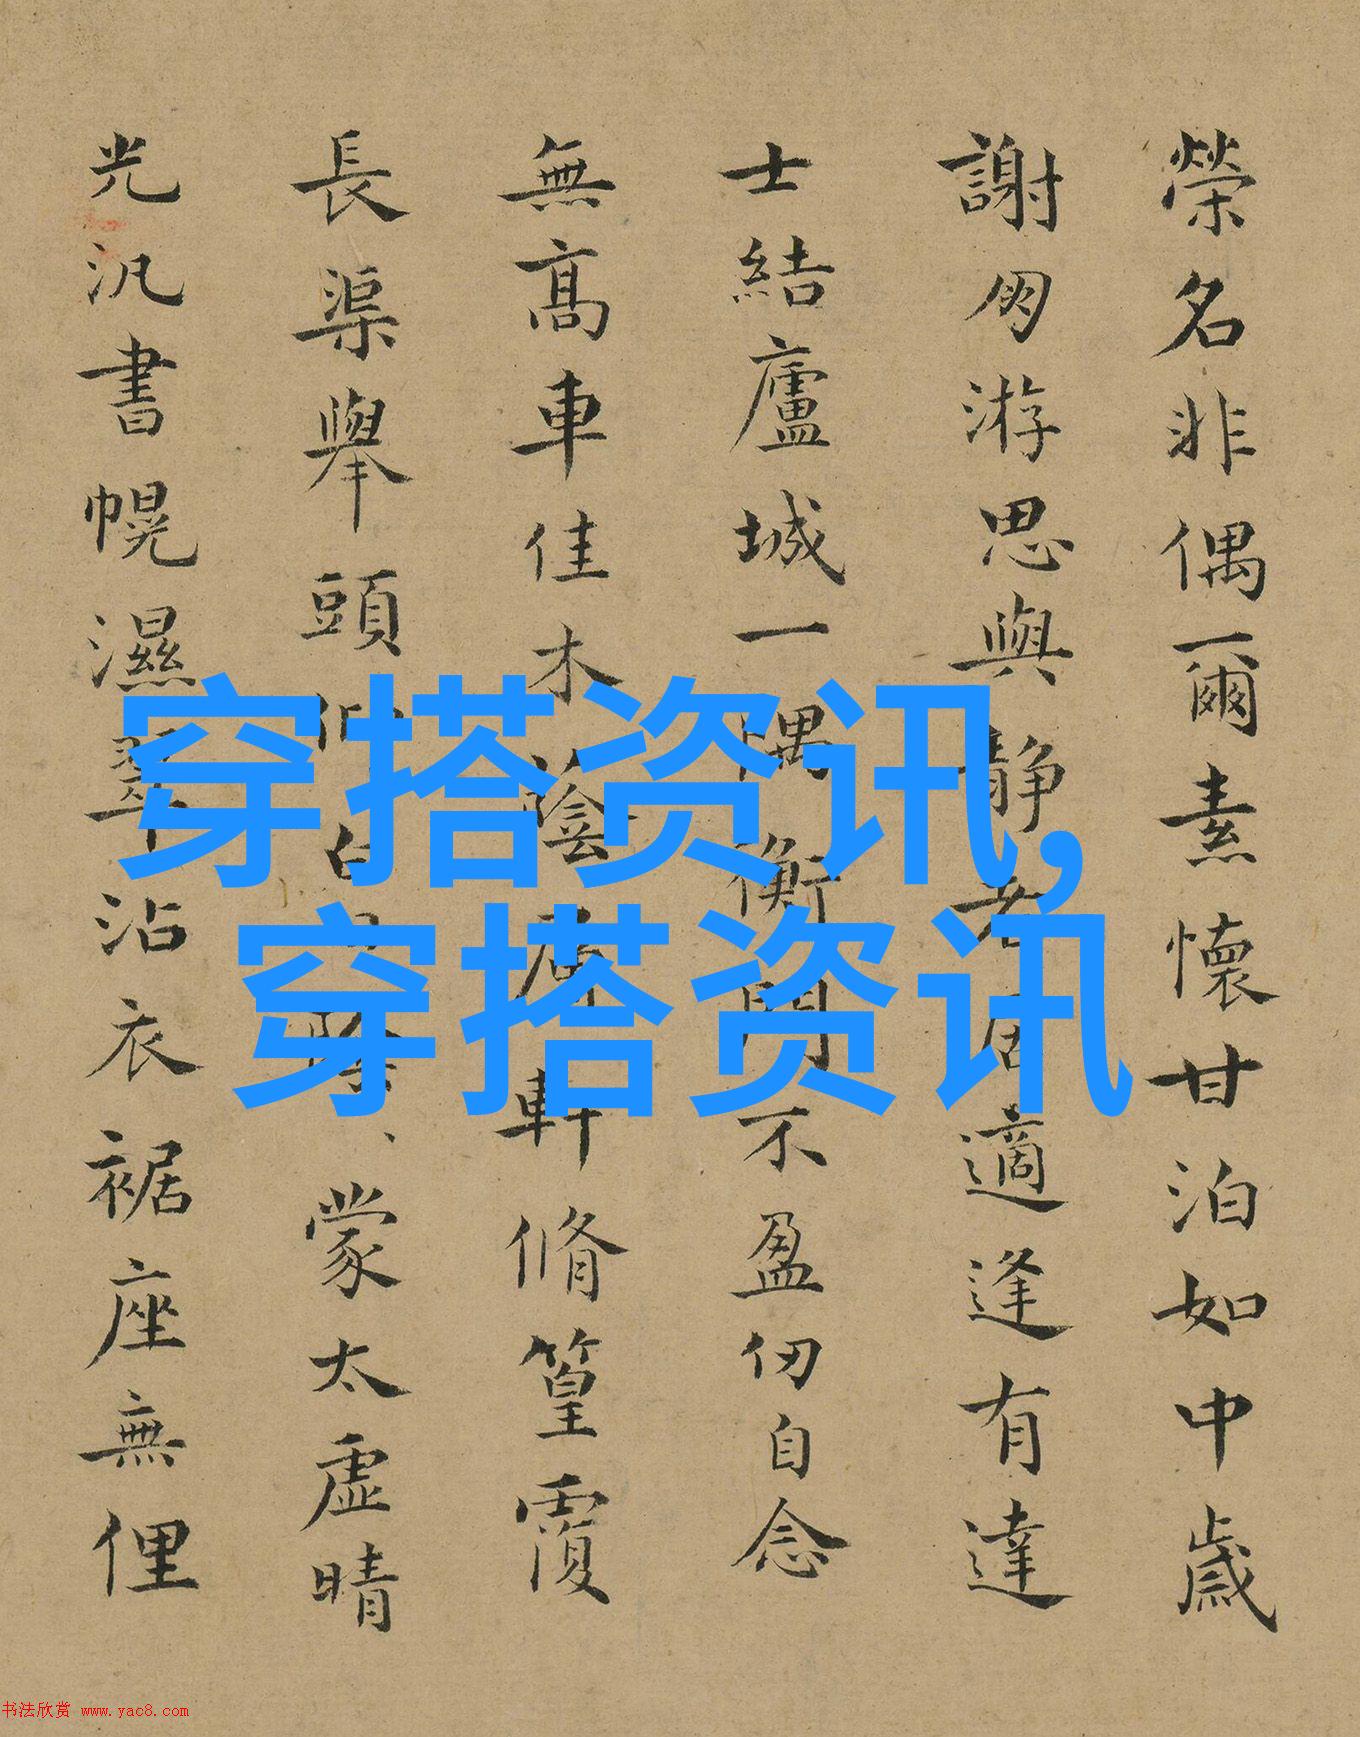 榮名非偶爾素懷甘泊如中歲
謝朋游思與靜者居適逢有達
士結廬城一隅衡門不盈仞自念
無髙車佳木蔭軒脩篁覆
長渠舉頭蒙太虛晴
光汎書幌濕翠沾衣裾座無俚
穿搭资讯,
穿搭资讯
书法欣赏 www.yac8.com